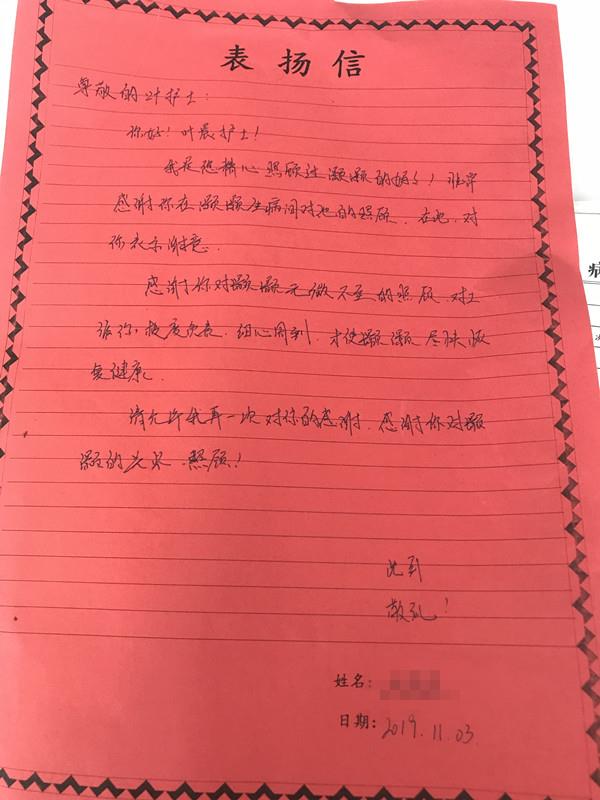 表扬信
尊敬的叶护士：
你好！叶晨护士！
我是您精心照顾过灏灏的妈妈！非常
感谢你在灏灏生病间对他的照顾。在此，对
你表示谢意。
感谢你对灏灏无微不至的照顾，对工
作你，极度负责，细心周到，才使灏灏尽快恢
复健康。
请允许我再一次对你的感谢，感谢你对灏
灏的关爱、照顾！
此致
敬礼！
姓名：
日期：2019.11.03
病